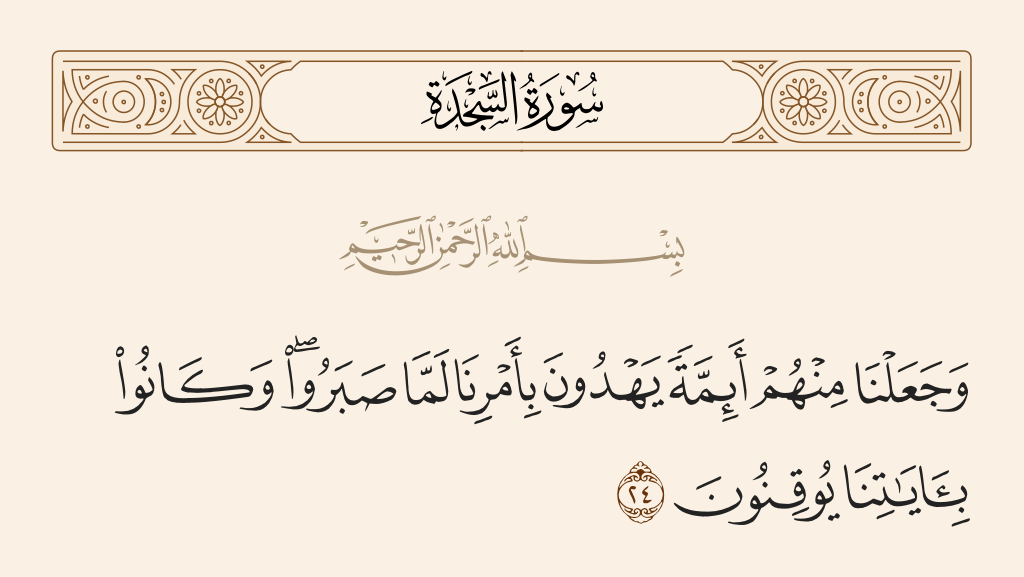 سُورَةُ السَّجْدَةِ
بِسْمِ ٱللَّهِ ٱلرَّحْمَٰنِ ٱلرَّحِيمِ
وَجَعَلْنَا مِنْهُمْ أَئِمَّةً يَهْدُونَ بِأَمْرِنَا لَمَّا صَبَرُوا۟ ۖ وَكَانُوا۟
بِـَٔايَـٰتِنَا يُوقِنُونَ ٢٤